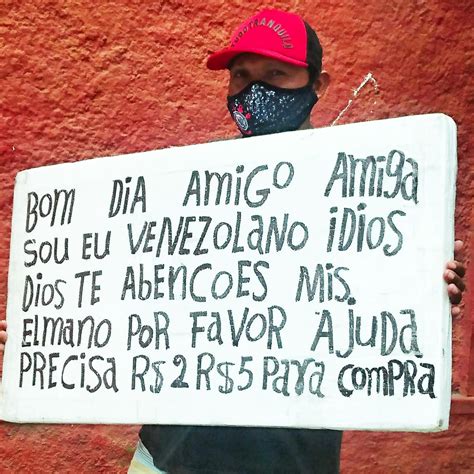 BOM DIA AMIGO AMIGA
SOU EU VENEZOLANO iDIOS
DIOS TE ABENCOES MIS.
ELMANO POR FAVOR AJUDA
PRECISA R$2 R$5 PARA COMPRA